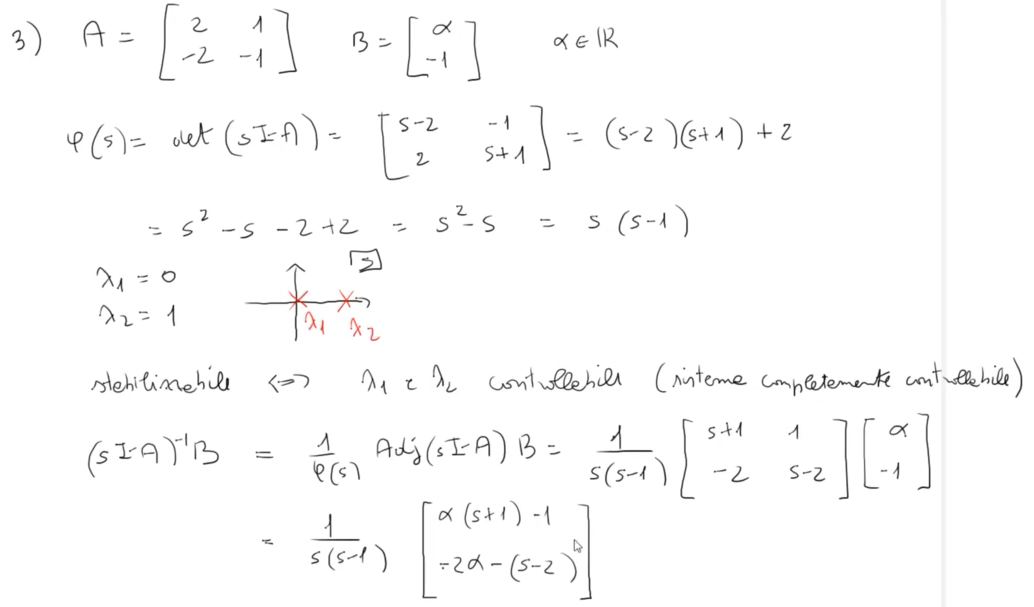 3) A = [ 2 1 ; -2 -1 ] B = [ α ; -1 ] α ∈ ℝ
φ(s) = det (sI-A) = [ s-2 -1 ; 2 s+1 ] = (s-2)(s+1) + 2
= s² - s - 2 + 2 = s² - s = s (s-1)
λ1 = 0
λ2 = 1
s
λ1 λ2
stabilizzabile <=> λ1 e λ2 controllabili (sistema completamente controllabile)
(sI-A)⁻¹B = 1/φ(s) Adj(sI-A) B = 1/s(s-1) [ s+1 1 ; -2 s-2 ] [ α ; -1 ]
= 1/s(s-1) [ α(s+1) -1 ; -2α - (s-2) ]